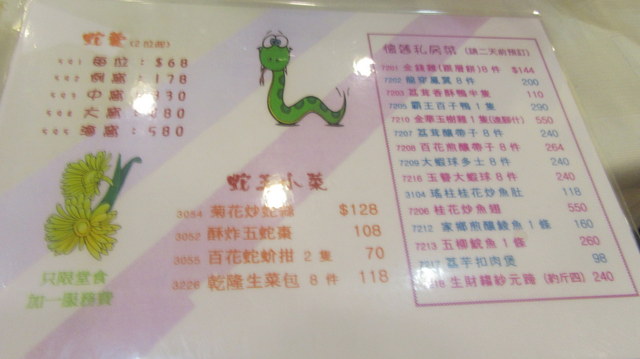 蛇羹(2位起)
每位：$68
：178
中窩：
大窩：
：580
蛇王小菜
3054 菊花炒蛇絲 $128
3052 酥炸五蛇棗 108
3055 百花蛇蚧拑 2 隻 70
3226 乾隆生菜包 8 件 118
只限堂食
加一服務費
私房菜 (請二天前預訂)
7201 金錢雞(跟層餅)8 件 $144
7202 龍穿鳳翼 8 件 200
7203 荔茸香酥鴨半隻 110
7205 霸王百子鴨 1 隻 290
7210 金華玉樹雞 1 隻 550
7207 荔茸釀帶子 8 件 240
7208 百花煎釀帶子 8 件 264
7209 大蝦球多士 8 件 240
7216 玉簪大蝦球 8 件 240
3104 瑤柱桂花炒魚肚 118
7206 桂花炒魚翅 550
7212 家鄉煎釀鯪魚 1 條 160
7213 五柳鯇魚 1 條 260
荔芋扣肉煲 98
生財 元蹄 (約斤四) 240